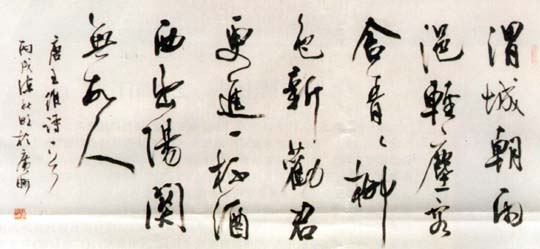 渭城朝雨
浥輕塵客
舍青々柳
色新勸君
更進一杯酒
西出陽關
無故人
唐王維詩一首
丙戌於廣州